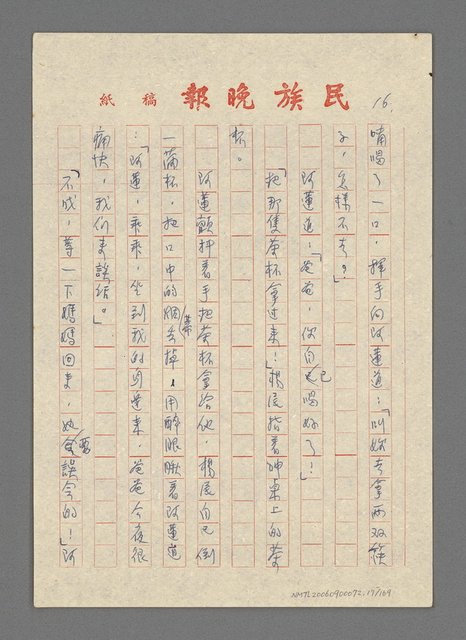 民族晚報 稿紙
16.
喃喝了一口，揮手向阿蓮道：「叫妳去拿兩双筷
子，怎樣不去？」
阿蓮道：「爸爸，你自己喝好了！」
「把那隻茶杯拿过來！」楊俊指着神桌上的茶
杯。
阿蓮顫抖着手把茶杯拿給他，楊俊自己倒
一滿杯，把口中的烟蒂丢掉，用醉眼瞅着阿蓮道
：「阿蓮，乖乖，坐到我的身边來，爸爸今夜很
痛快，我们來談話。」
「不成，等一下媽媽回來，她会要誤会的！」阿
NMTL20060900072.17/169